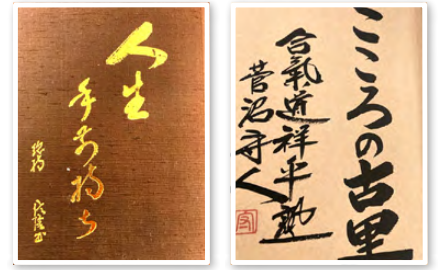 人生
手前持ち
こころの古里
合氣道祥平塾
菅沼守人